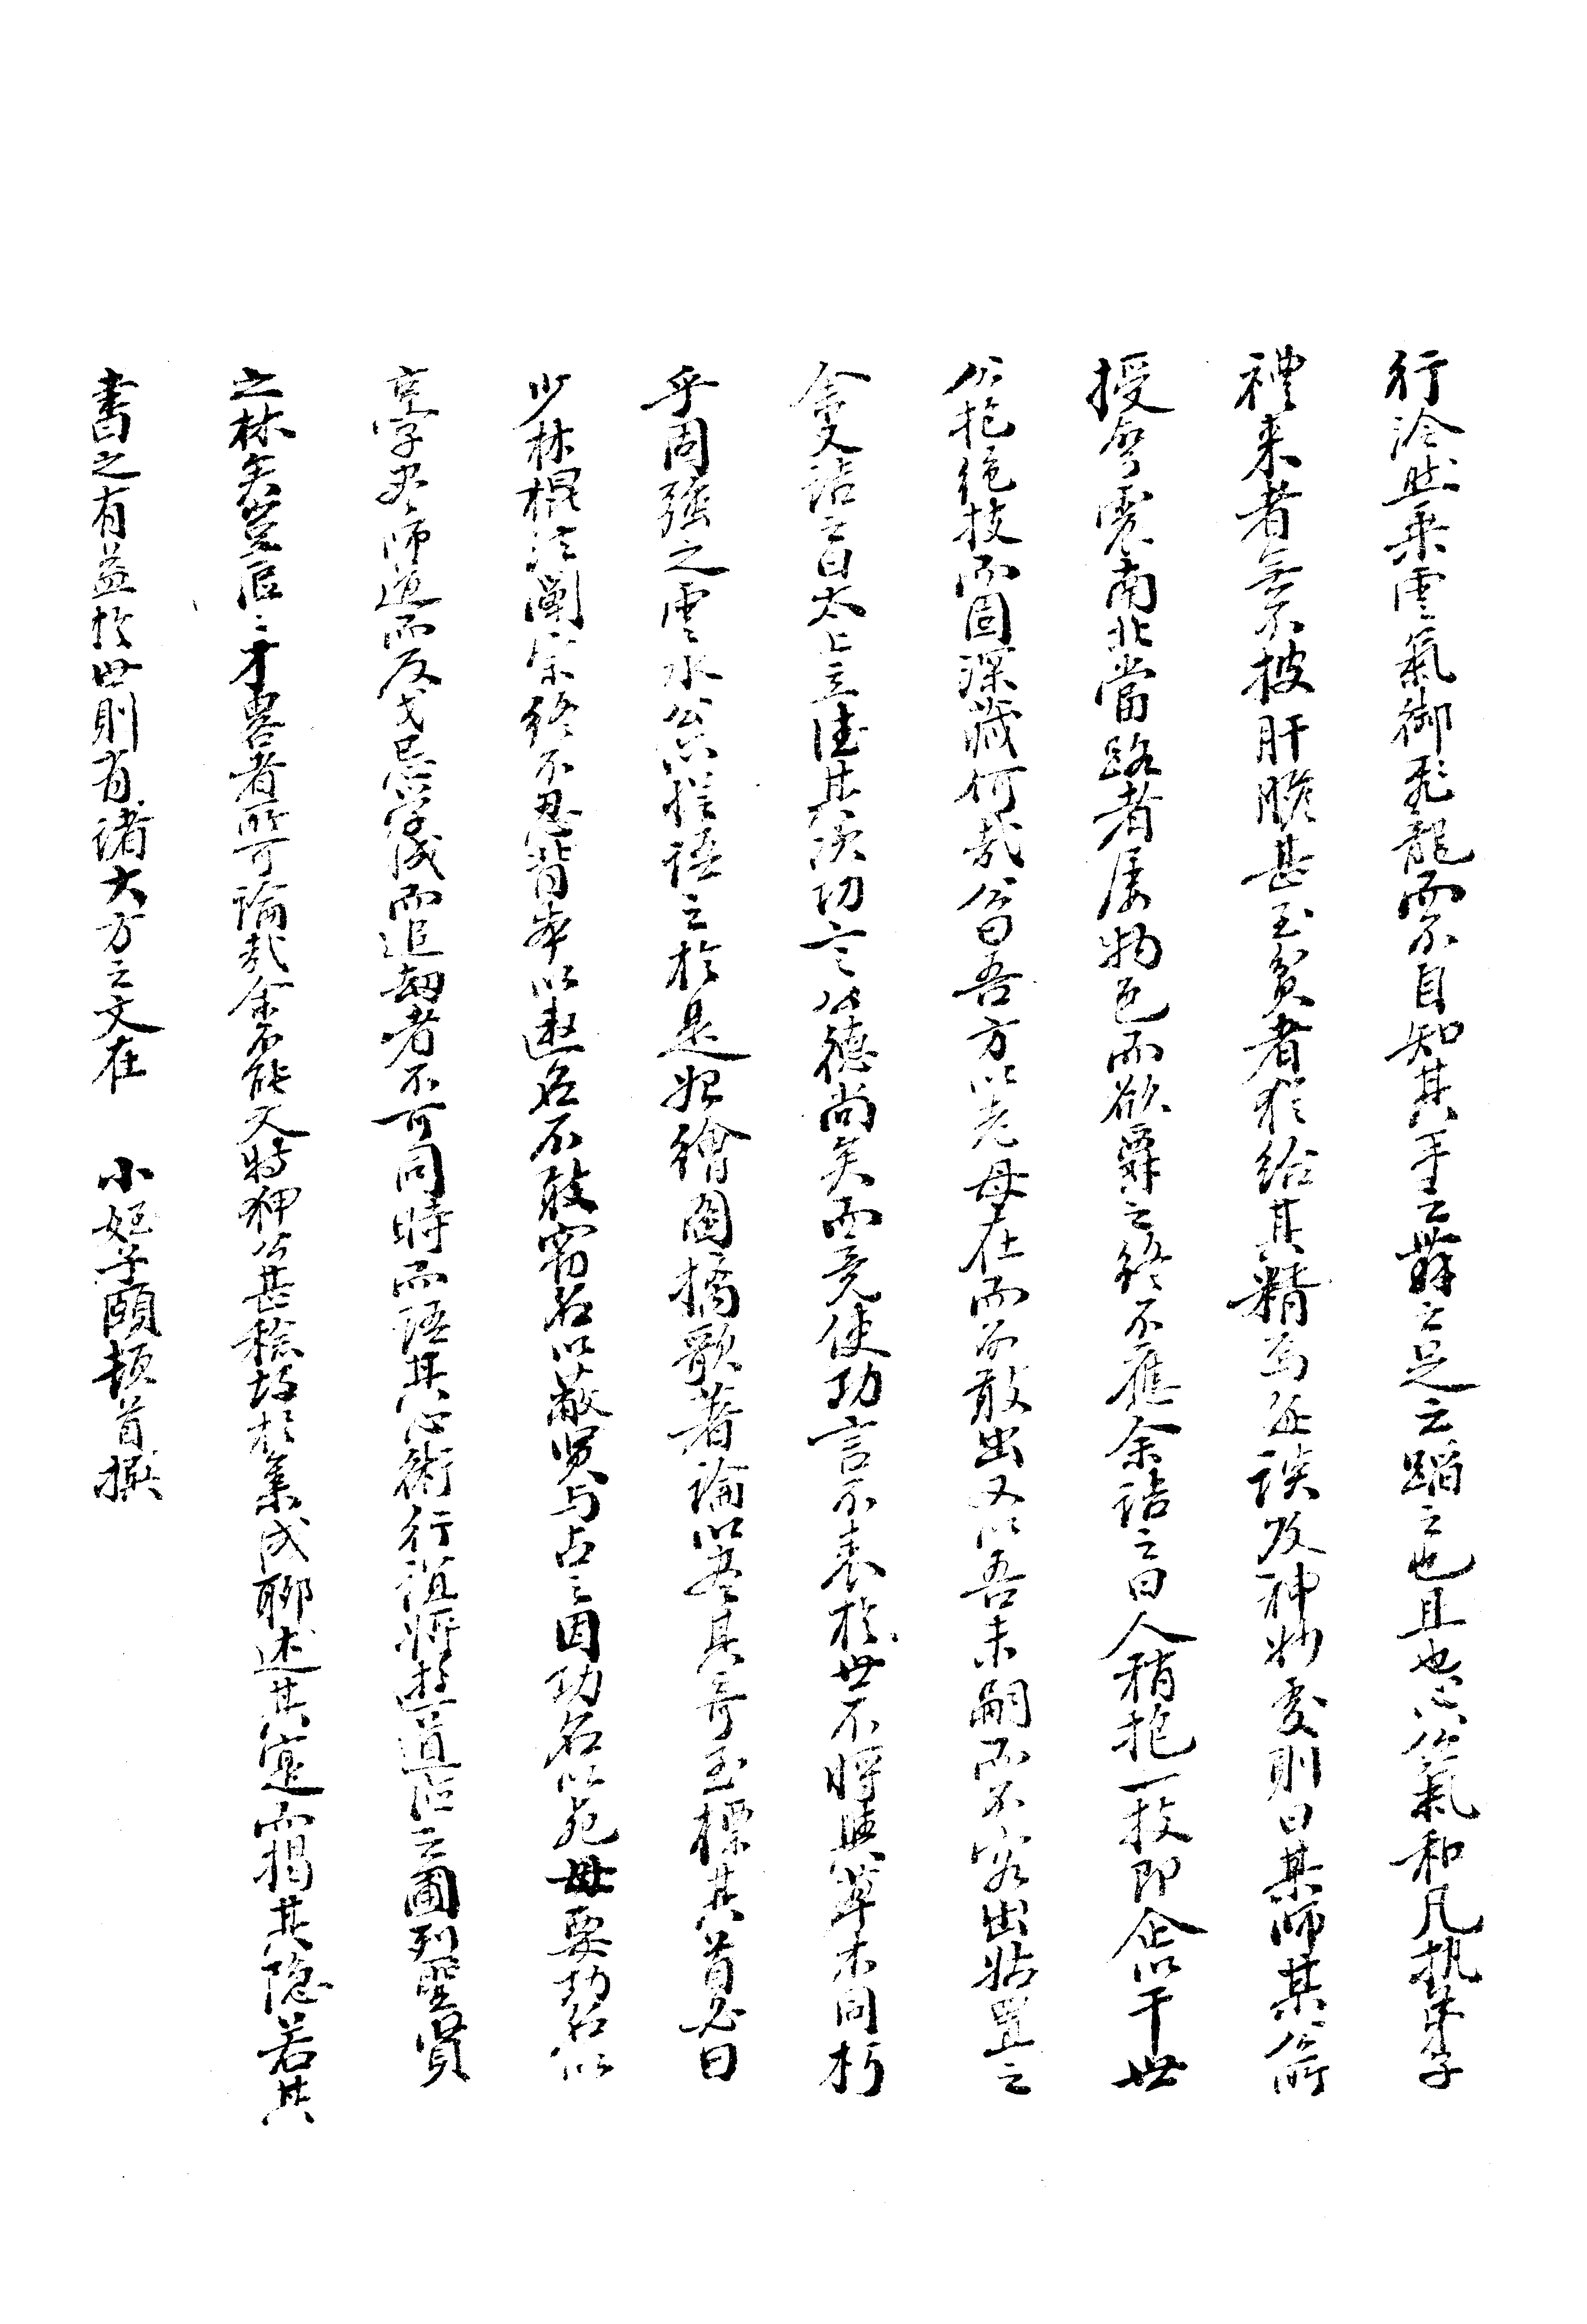 行泠然乘雲氣御飛龍而不自知其手之舞之足之蹈之也且也公氣和凡執弟子
禮来者無不披肝膽甚至貧者猶給其精焉每談及神妙處則曰某師某公所
授無寘南北當路者屢物色而欲爵之終不應余詰之曰人稍抱一技即企以干世
公抱絶技而固深藏何哉公曰吾方以老母在而不敢出又以吾未嗣而不容出姑置之
余又詰之曰太上立德其次功言公德尚矣而竟使功言不表於世不將與草木同朽
乎固強之雲水公然從語之於是始繪圖摛歌著論以盡其奇至標其首必曰
少林棍法闡宗終不忍背本以遨名不敢竊名以蔽贤与占占因功名以死母要功名以
享字史師道而反戈忌學成而追劫者不可同時而語其心術行誼將遊道德之圃列聖賢
之林矣豈區區才畧者所可論哉余不能文特狎公甚稔故於集成聊述其寔而揭其隐若其
書之有益於世則有諸大方之文在　小姪子頤頓首撰